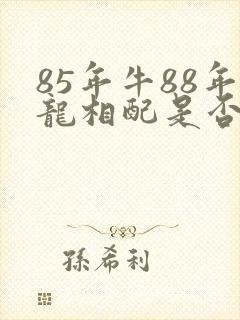 85年牛88年
龍相配是否
孫希利